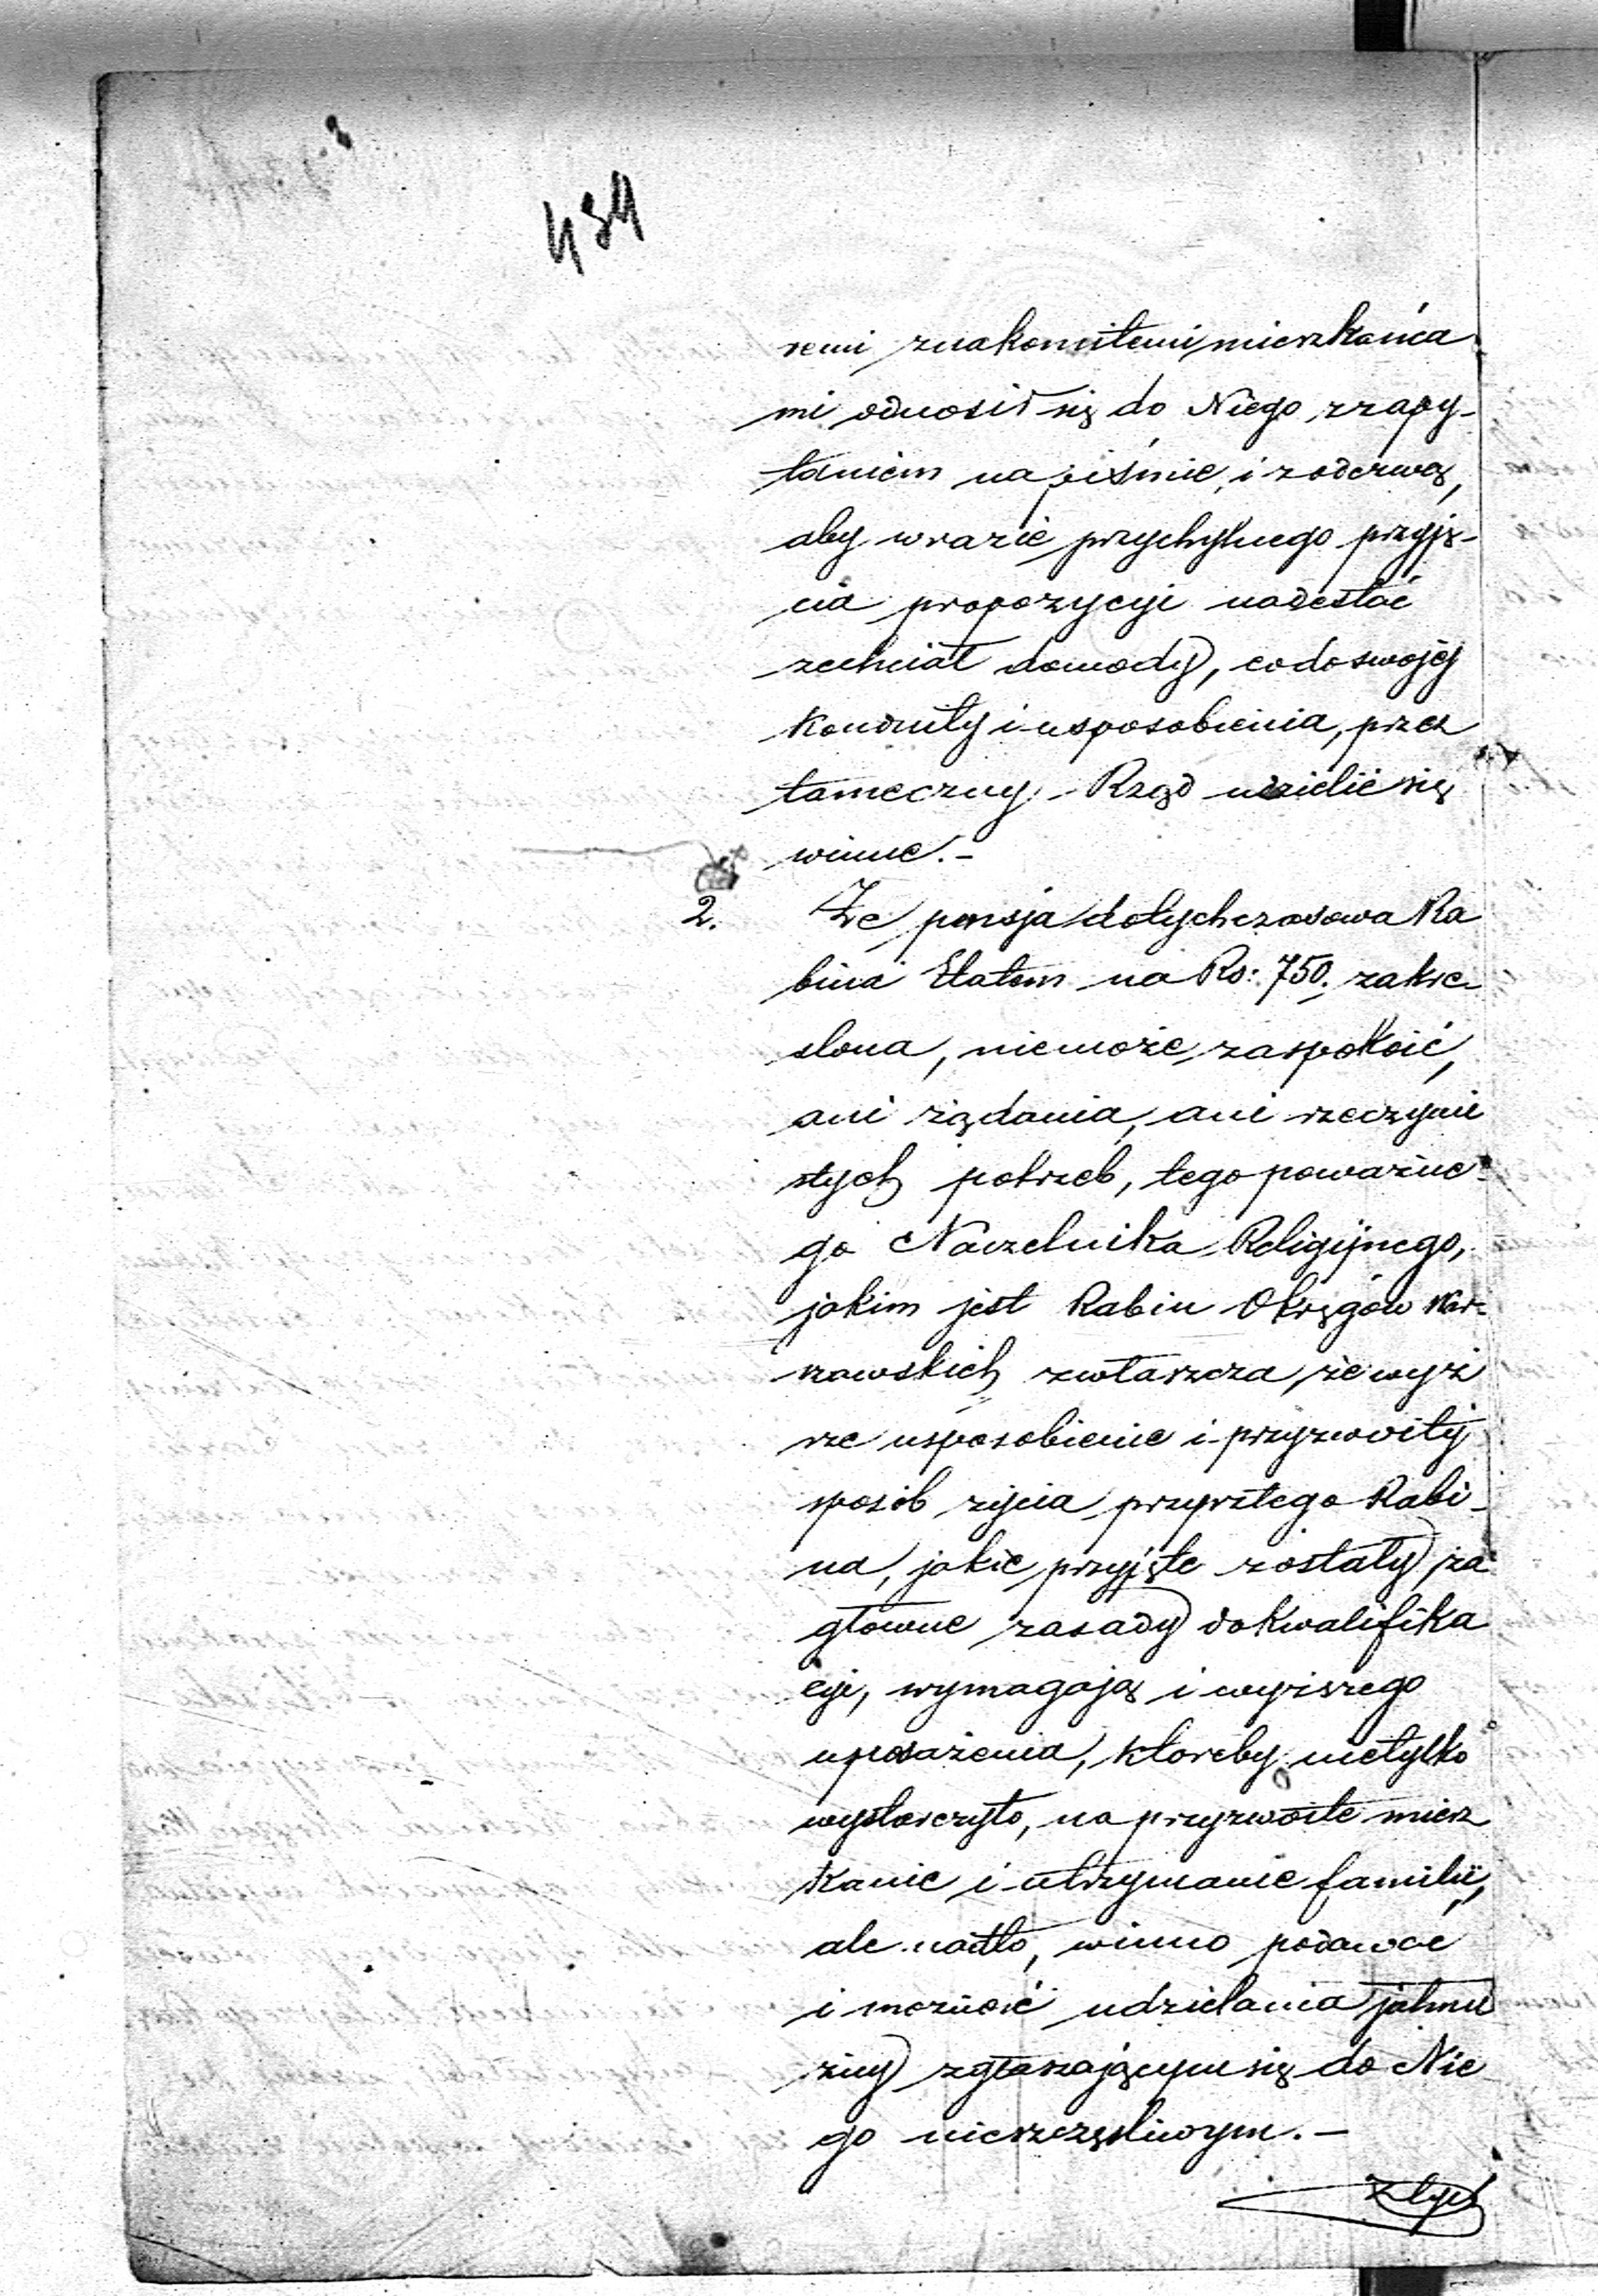 484
remi znakomitemi mieszkańca
mi odnosił się do Niego z zapy-
taniem na piśmie, i z odezwą,
aby w razie przychylnego przyję-
cia propozycyi nadesłać
zechciał dowody, co do swojéj
Konduity i usposobienia, przez
tameczny Rząd udzielić się
winne.-
2. Że pensja dotychczasowa Ra
bina Etatem na Rs: 750. zakre-
slona, niemoże zaspokoić,
ani żądania, ani rzeczywi
stych potrzeb, tego poważne-
go Naczelnika Religijnego,
jakim jest Rabin Okręgów War-
szawskich zwłaszcza, że wyż
sze usposobienie i przyzwoity
sposób życia przyszłego Rabi-
na, jakie przyjęte zostały za
główne zasady do Kwalifika
cyi, wymagają i wyższego
uposażenia, któreby nietylko
wystarczyło, na przyzwoite miesz
kanie i utrzymanie familii,
ale nadto, winno podawać
i możność udzielania jałmu
żny zgłaszającym się do Nie
go nieszczęśliwym.-